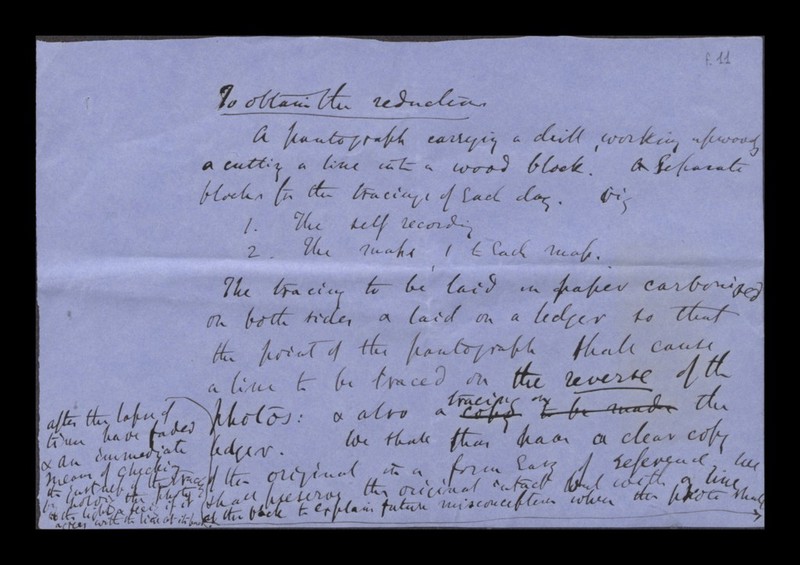 f. 11
To obtain the reductions
A pantograph carrying a drill, working upwards
& cutting a line into a wood block. A Separate
blocks for the tracings of Each day. Viz
1. The self recording
2. The maps, 1 to Each map.
The tracing to be laid on paper carbonized
on both sides & laid on a ledger so that
the point of the pantograph shall cause
a line to be traced on the reverse of the
photos: & also a copy tracing on to be made the
ledger. We shall thus have a clear copy
of the original in a form Easy of reference, we
shall preserve the original intact but with a line
at the back to explain future misconceptions when the photos shall
after the lapse of
time have faded
& an immediate
means of checking
the justness of the tracing
by holding the photo
to the light & seeing if it
agrees with the line at its back.